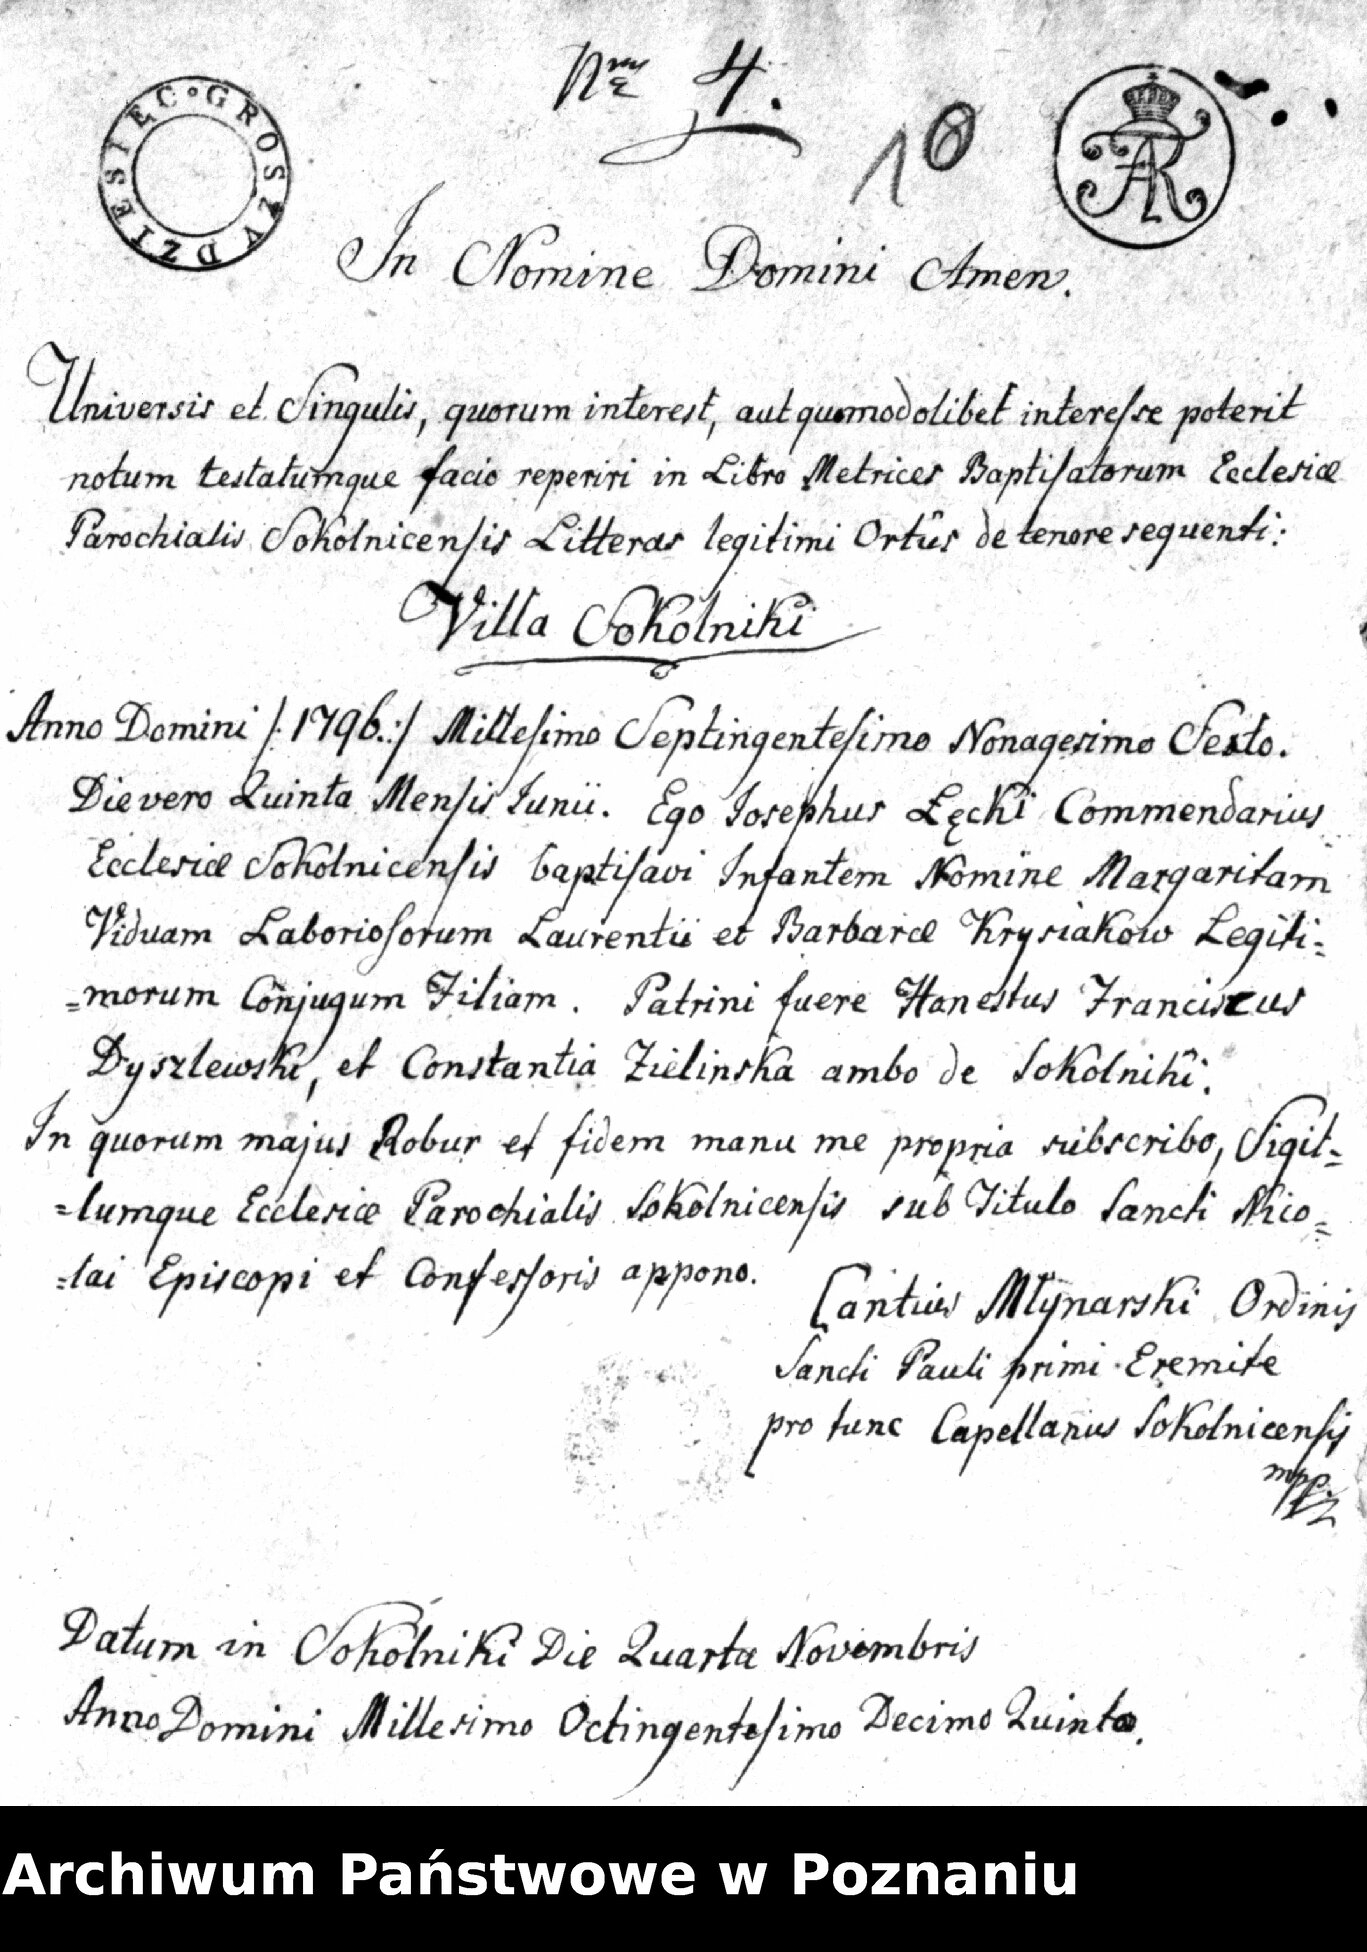 Nro 4.
10
DZIESIĘC • GROSZY
AR
In Nomine Domini Amen.
Universis et Singulis, quorum interest, aut quomodolibet interesse poterit
notum testatumque facio reperiri in Libro Metrices Baptisatorum Ecclesiæ
Parochialis Sokolnicensis Litteras legitimi Ortûs de tenore sequenti:
Villa Sokolniki
Anno Domini /: 1796.:/ Millesimo Septingentesimo Nonagesimo Sexto.
Die vero Quinta Mensis Iunii. Ego Iosephus Łęcki Commendarius
Ecclesiæ Sokolnicensis baptisavi Infantem Nomine Margaritam
Viduam Laboriosorum Laurentii et Barbaræ Krysiakow Legiti=
=morum Conjugum Filiam. Patrini fuere Honestus Franciscus
Dyszlewski, et Constantia Zielinska ambo de Sokolniki.
In quorum majus Robur et fidem manu me propria subscribo, Sigil=
=lumque Ecclesiæ Parochialis Sokolnicensis sub Titulo Sancti Nico=
=lai Episcopi et Confessoris appono.
Cantius Młynarski Ordinis
Sancti Pauli primi Eremite
pro tunc Capellanus Sokolnicensis
mpp
Datum in Sokolniki Die Quarta Novembris
Anno Domini Millesimo Octingentesimo Decimo Quinto.
Archiwum Państwowe w Poznaniu